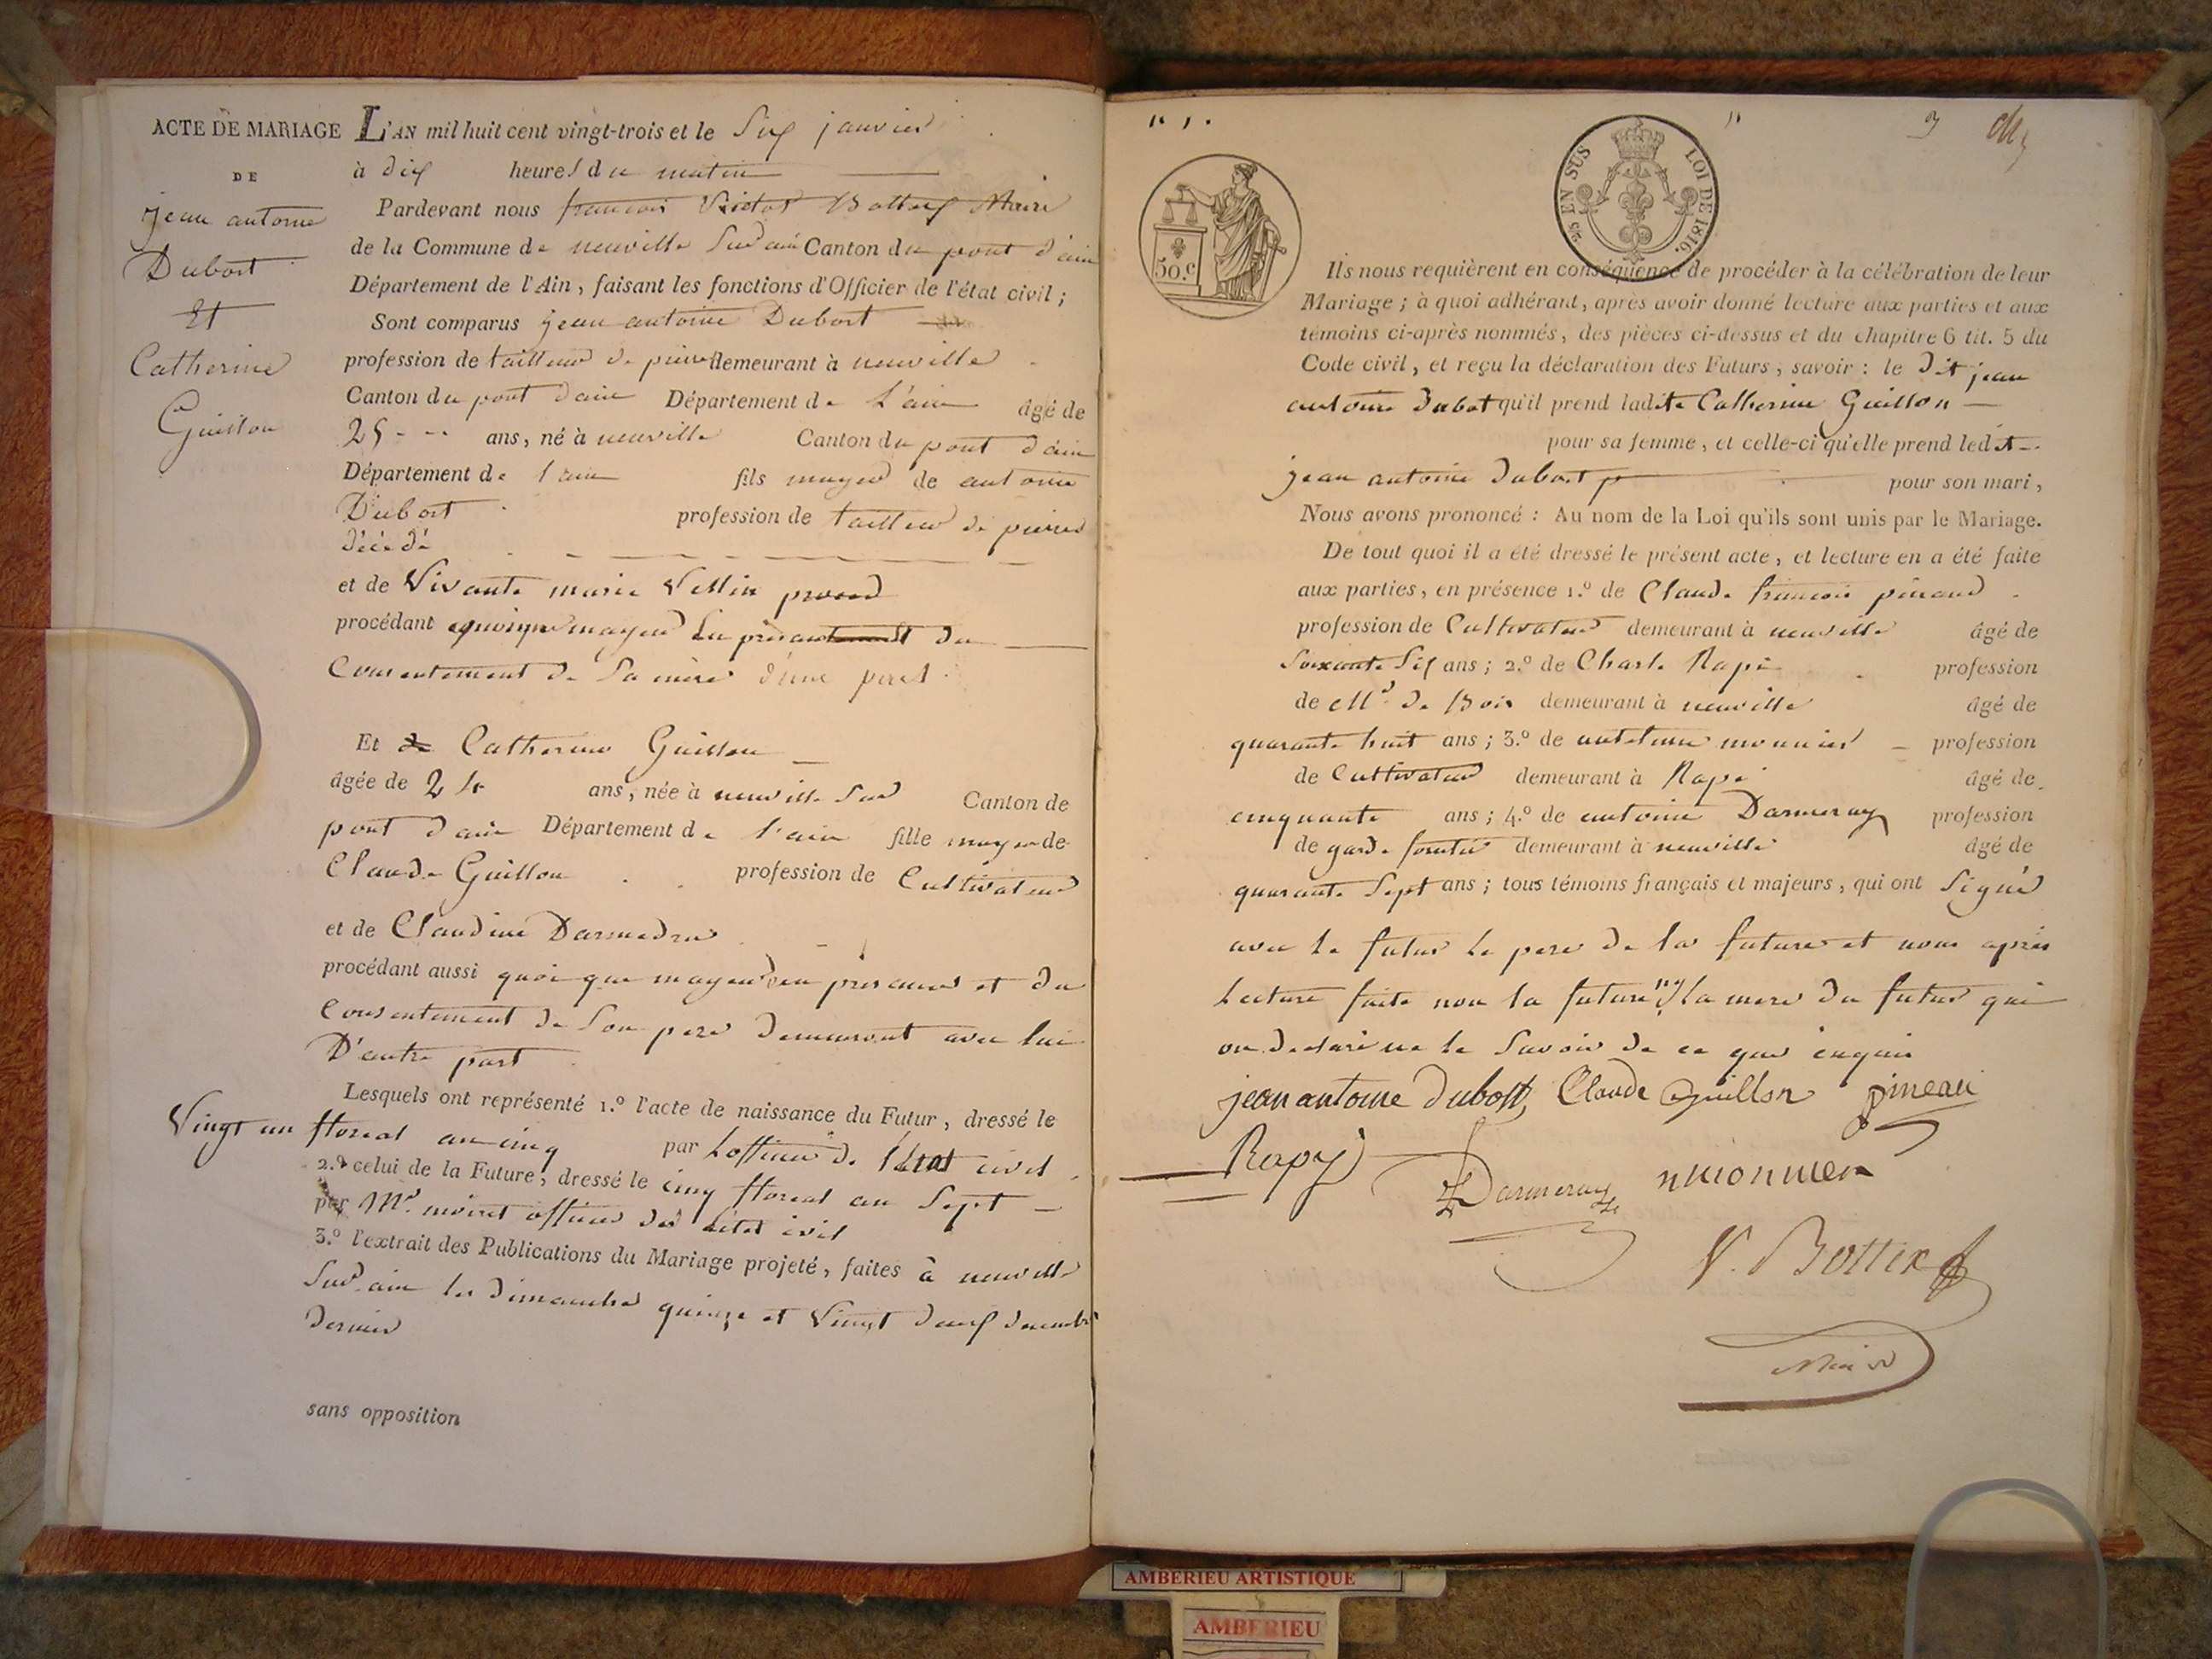 ACTE DE MARIAGE
DE
jean antoine
Dubost
Et
Catherine
Guillon
L'AN mil huit cent vingt-trois et le Six janvier
à dix heures du matin
Pardevant nous francois Victor Bottex Maire
de la Commune de neuville Sur ain Canton du pont d'ain
Département de l'Ain, faisant les fonctions d'Officier de l'état civil ;
Sont comparus jean antoine Dubost
profession de tailleur de pierre demeurant à neuville
Canton du pont dain Département de L'ain âgé de
25 ans, né à neuville Canton du pont d'ain
Département de l'ain fils mayeur de antoine
Dubost profession de tailleur de pierres
décédé
et de Vivante marie Vellin
procédant quoique mayeur du
Consentement de Sa mère d'une part
Et Catherine Guillon
âgée de 24 ans, née à neuville Sur Canton de
pont d'ain Département de l'ain fille de
Claude Guillon profession de Cultivateur
et de Claudine
procédant aussi quoi que mayeur en presance et du
Consentement de Son pere demeurant avec lui
D'autre part
Lesquels ont représenté 1.º l'acte de naissance du Futur, dressé le
Vingt un floreal an cinq par Lofficier de l'Etat civil
2.º celui de la Future, dressé le cinq floreal an Sept
par Mr. moiret officier de civil
3.º l'extrait des Publications du Mariage projeté, faites à neuville
Sur ain les dimanches quinze et Vingt deux decembre
dernier
sans opposition
45 EN SUS
LOI DE 1816.
50.c
Ils nous requièrent en conséquence de procéder à la célébration de leur
Mariage ; à quoi adhérant, après avoir donné lecture aux parties et aux
témoins ci-après nommés, des pièces ci-dessus et du chapitre 6 tit. 5 du
Code civil, et reçu la déclaration des Futurs, savoir : le Dit jean
antoine Dubost qu'il prend ladite Catherine Guillon
pour sa femme, et celle-ci qu'elle prend ledit
jean antoine dubost pour son mari,
Nous avons prononcé : Au nom de la Loi qu'ils sont unis par le Mariage.
De tout quoi il a été dressé le présent acte, et lecture en a été faite
aux parties, en présence 1.º de Claude francois
profession de Cultivateur demeurant à neuville âgé de
Soixante Six ans ; 2.º de Charle Rapi profession
de Md. de Bois demeurant à neuville âgé de
quarante huit ans ; 3.º de monnier profession
de Cultivateur demeurant à Rapi âgé de
cinquante ans ; 4.º de antoine Darmeray profession
de garde forestier demeurant à neuville âgé de
quarante Sept ans ; tous témoins français et majeurs, qui ont Signé
avec le futur Le pere de la future et nous après
Lecture faite non la future ny la mere du futur qui
on declaré ne le Savoir de ce que enquis
jean antoine dubost Claude Guillon pineau
Rapy Darmeray monnier
V. Bottex
Maire
AMBERIEU ARTISTIQUE
AMBERIEU